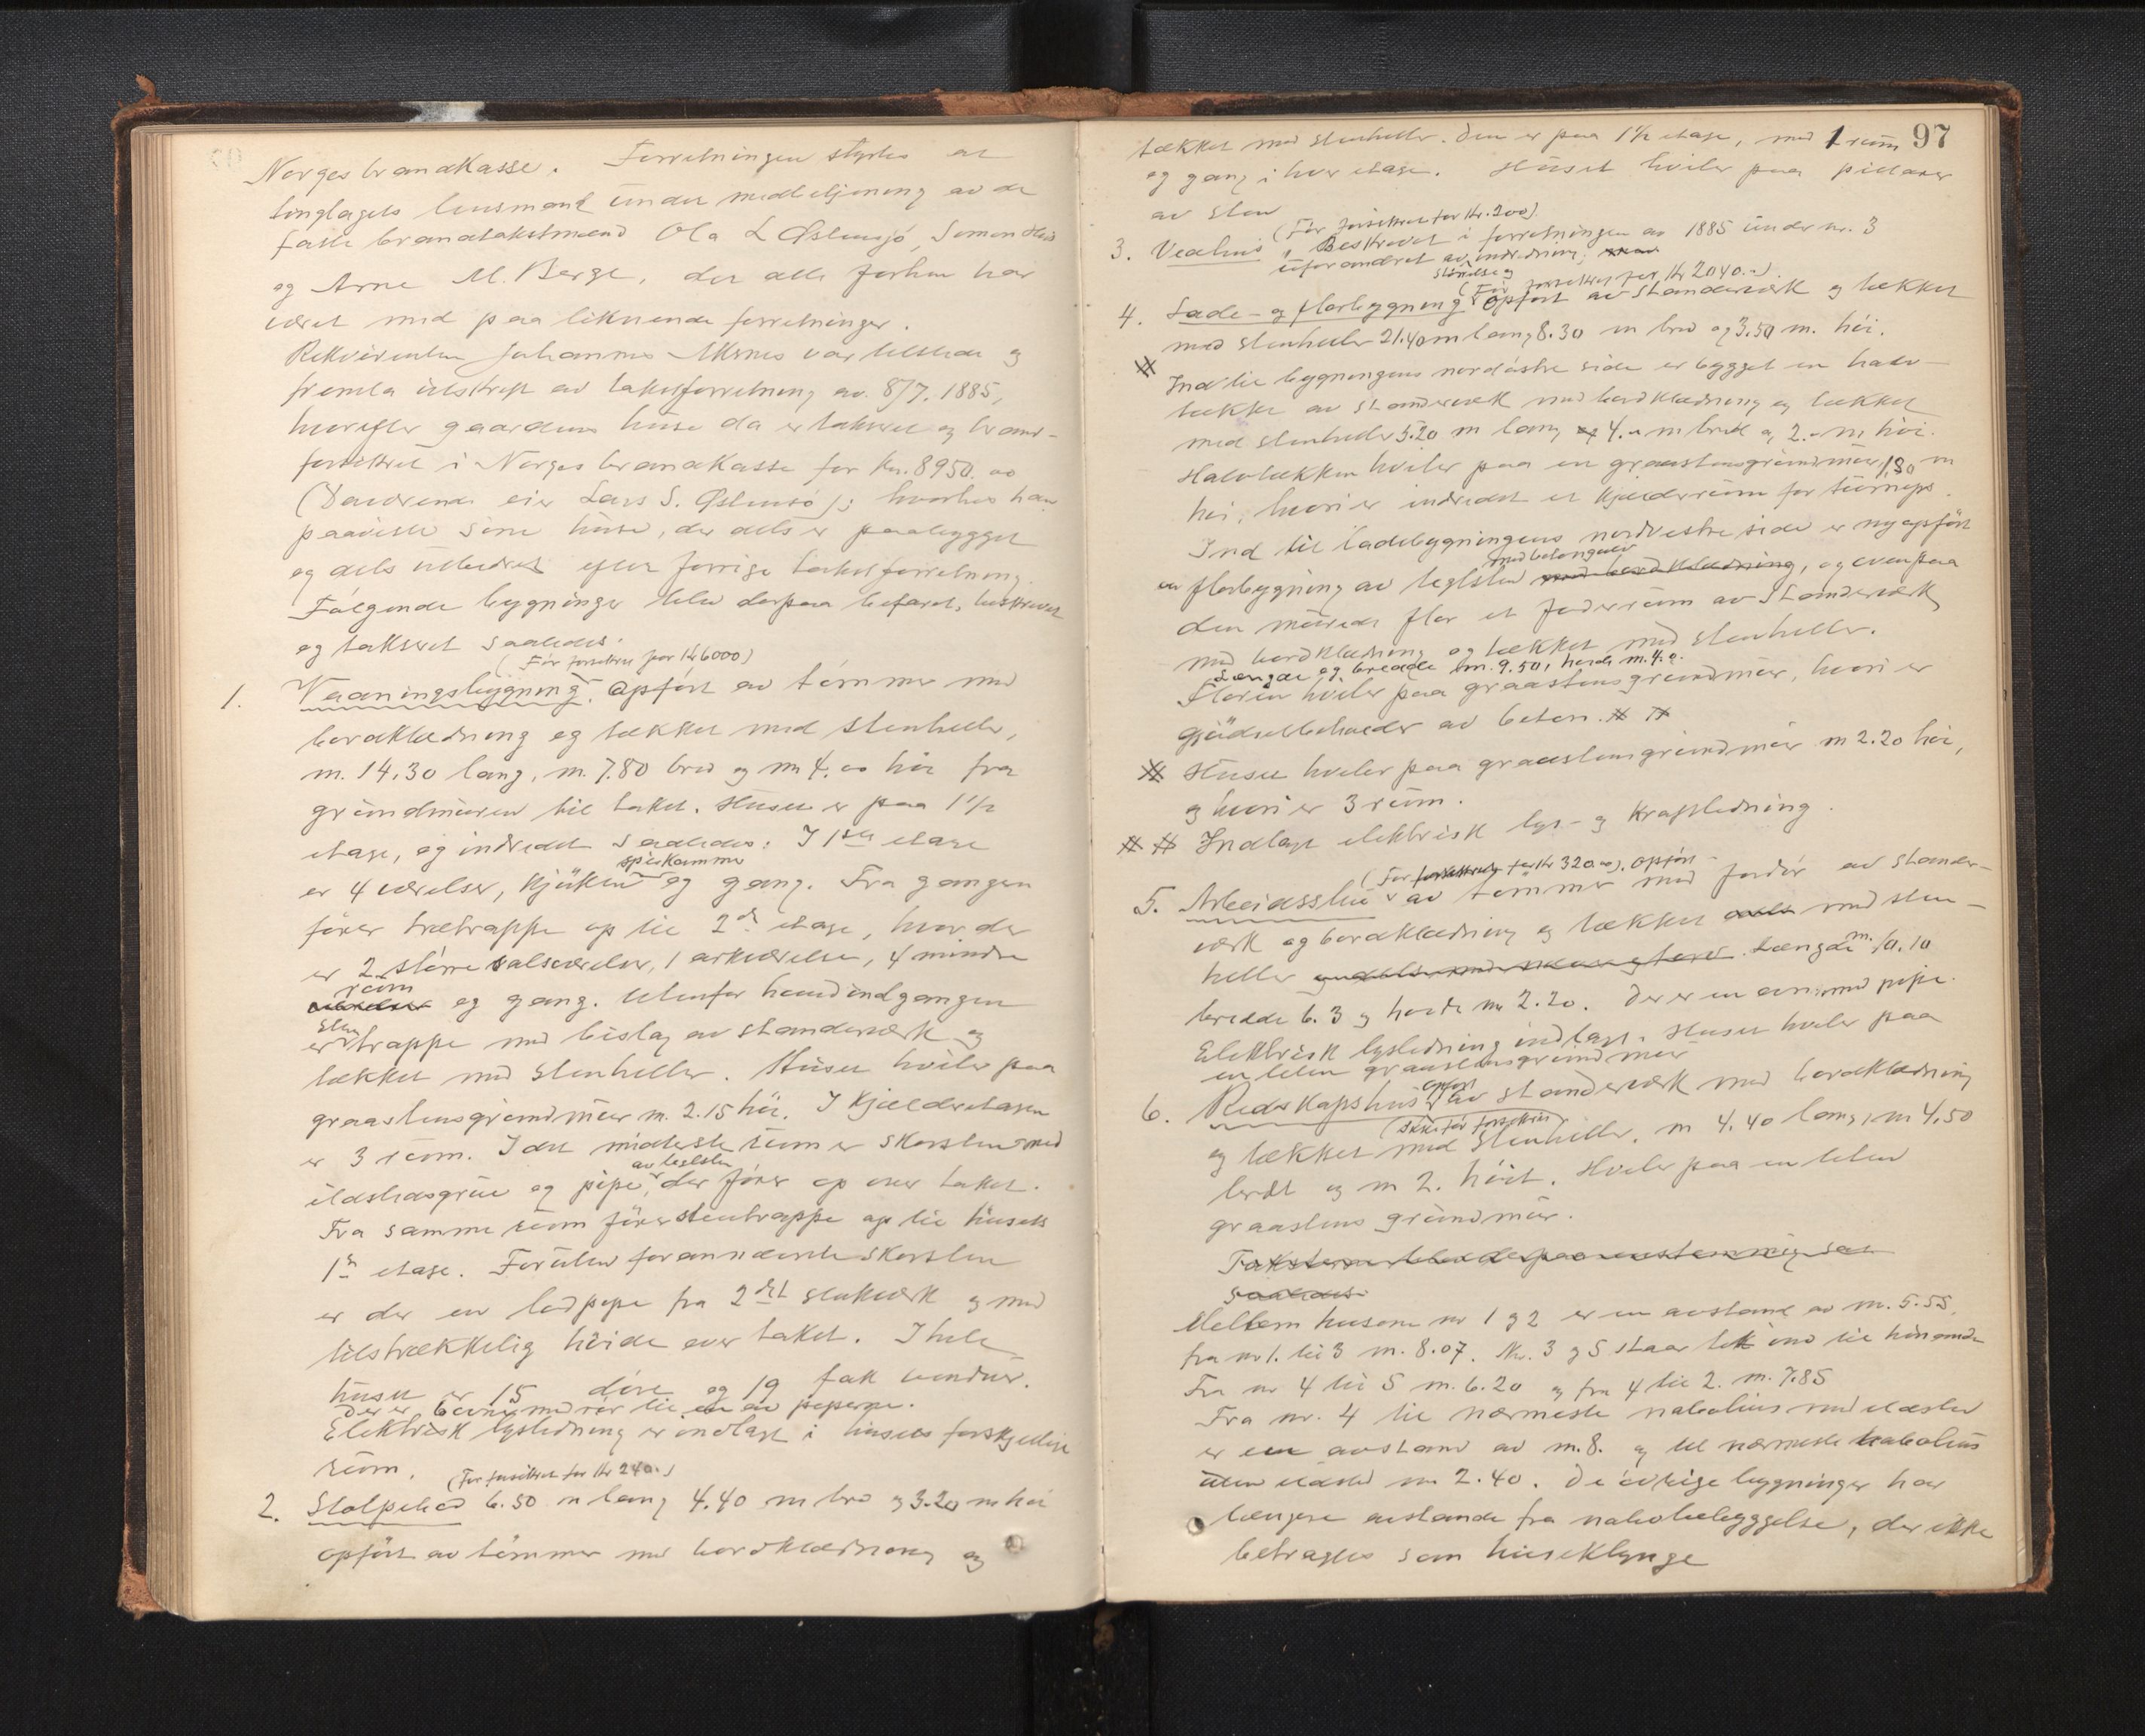 Norges brandkasse. Forretningen styrtes av
tinglagets lensmand under medbetjening av de
faste brandtakstmænd Ola L Østensjø, Simon
og Arne M. Berge, der alle forhen har
været med paa liknende forretninger.
Rekvirenten Johannes Aksnes var tilstede og
fremla utskrift av takstforretning av 8/7. 1885,
hvorefter gaardens huse da er takseret og brand-
forsikret i Norges brandkasse for Kr. 8950.00
(Daværende eier Lars S. Østensø); hvorhos han
paaviste sine huse, der dels er paabygget
og dels utbedret efter forrige takstforretning.
Følgende bygninger blev derpaa befaret, beskrevet
og takseret saaledes:
(Før forsikret for Kr 6000)
1. Vaaningsbygning. Opført av tømmer med
bordklædning og tækket med stenheller,
m. 14.30 lang, m. 7.80 bred og m 4.00 høi fra
grundmuren til taket. Huset er paa 1 1/2
etage, og indredet saaledes: I 1ste etage
spiskammer
er 4 værelser, kjøken og gang. Fra gangen
fører trætrappe op til 2den etage, hvor der
er 2 større salsværelser, 1 arkværelse, 4 mindre
rum
værelser og gang. Utenfor hovedindgangen
sten
er trappe med bislag av standerverk og
tækket med stenheller. Huset hviler paa
graastensgrundmur m. 2.15 høi. I kjælderetagen
er 3 rum. I det midterste rum er skorsten med
av teglsten
ildstedsgrue og pipe, der fører op over taket.
Fra samme rum fører stentrappe op til husets
1ste etage. Foruten forannævnte skorsten
er der en lodpipe fra 2det stokverk og med
tilstrækkelig høide over taket. I hele
huset er 15 døre og 19 fak vinduer.
Der er 6 ovne med rør til en av piperne.
Elektrisk lysledning er indlagt i husets forskjellige
rum. (Før forsikret for Kr 240.-)
2. Stolpebod 6.50 m lang 4.40 m bred og 3.20 m høi
opført av tømmer med bordklædning og
97
tækket med stenheller. Den er paa 1 1/2 etage, med 1 rum
og gang i hver etage. Huset hviler paa pillarer
av sten
(Før forsikret for Kr. 200).
3. Vedhus, Beskrevet i forretningen av 1885 under nr. 3
uforandret av indredning;
størrelse og
(Før forsikret for Kr 2040.-).
4. Lade- og florbygning opført av standerværk og tækket
med stenheller 21.40 m lang 8.30 m bred og 3.50 m. høi.
# Ind til bygningens nordøstre side er bygget en halv-
tække av standerverk med bordklædning og tækket
med stenheller 5.20 m lang og 4.- m bred og 2.- m høi.
Halvtækken hviler paa en graastensgrundmur 1,80 m
høi, hvori er indredet et kjælderrum for turneps.
Ind til ladebygningens nordvestre side er ny opført
med betongulv
en florbygning av teglsten med bordklædning, og ovenpaa
den murede flor et foderrum av standerværk
med bordklædning og tækket med stenheller.
Længde og bredde m. 9.50, høide m. 4.0.
Floren hviler paa graastensgrundmur, hvori er
gjødselbeholder av beton. # #
# Huset hviler paa graastensgrundmur m 2.20 høi,
og hvori er 3 rum.
# # Indlagt elektrisk lys- og kraftledning.
(Før forsikret for Kr 320.00). Opført
5. Arbeidsstue av tømmer med fordør av stander-
værk og bordklædning og tækket dels med sten-
heller . Længde m. 10.10
bredde 6.3 og høide m 2.20. Der er en ovn med pipe.
Elektrisk lysledning indlagt. Huset hviler paa
en liten graastensgrundmur
opført
6. Redskapshus av standerværk med bordklædning
(ikke før forsikret)
og tækket med stenheller. m 4.40 lang, m 4.50
bredt og m 2. høit. Hviler paa en liten
graastens grundmur.
Taksterne blev derpaa enstemmig sat
saaledes:
Mellem husene nr 1 og 2 er en avstand av m. 5.55,
fra nr 1. til 3 m. 8.07. Nr. 3 og 5 staar tæt ind til hinanden
Fra nr 4 til 5 m. 6.20 og fra 4 til 2. m. 7.85
Fra nr. 4 til nærmeste nabohus med ildsted
er en avstand av m. 8. og til nærmeste nabohus
uten ildsted m 2.40. De øvrige bygninger har
længere avstande fra nabobebyggelse, der ikke
betragtes som huseklynge